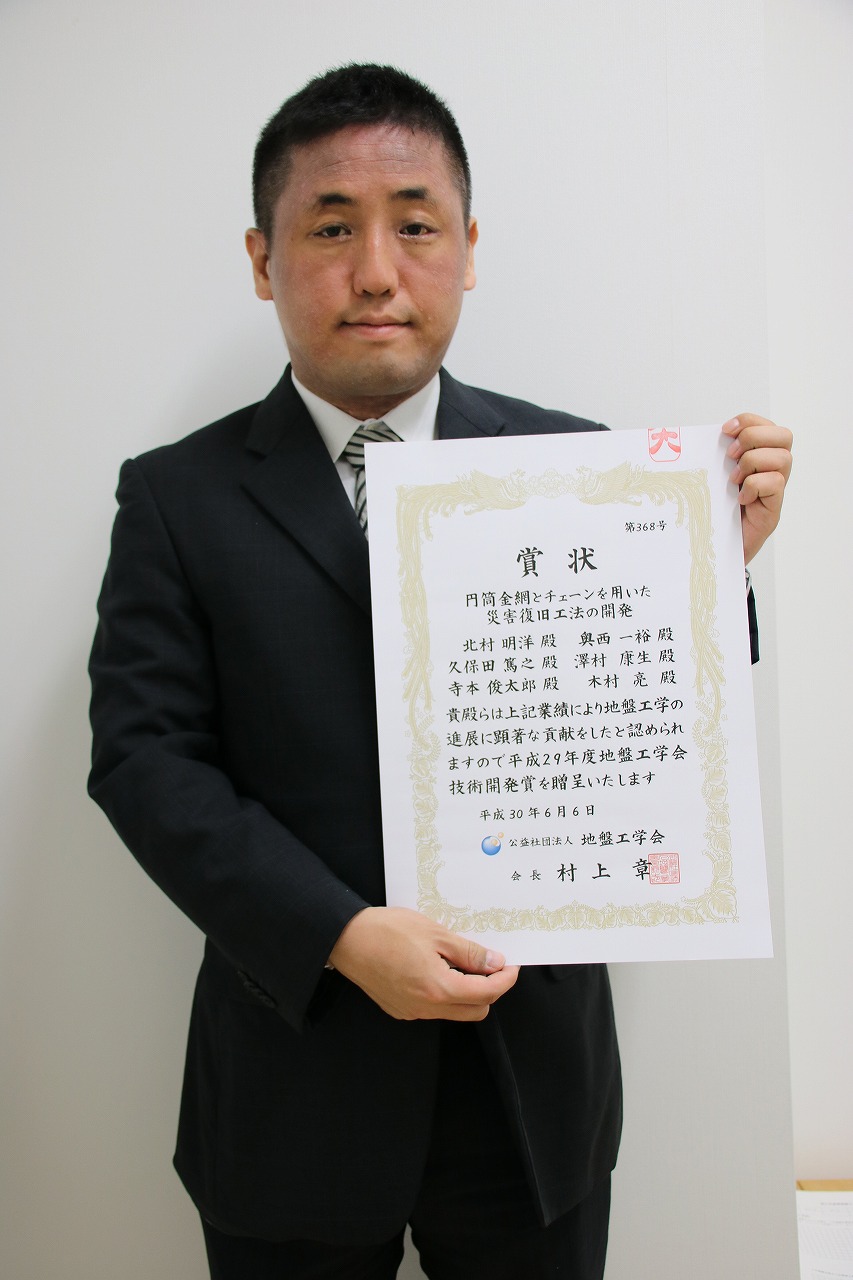 大
第368号
賞状
円筒金網とチェーンを用いた
災害復旧工法の開発
北村 明洋 殿 奥西 一裕 殿
久保田 篤之 殿 澤村 康生 殿
寺本 俊太郎 殿 木村 亮 殿
貴殿らは上記業績により地盤工学の
進展に顕著な貢献をしたと認められ
ますので平成29年度地盤工学会
技術開発賞を贈呈いたします
平成30年6月6日
公益社団法人 地盤工学会
会長 村上 章